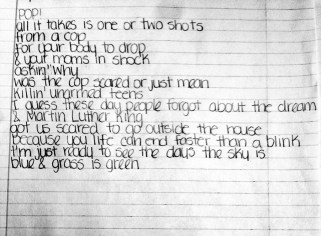 POP!
all it takes is one or two shots
from a cop
for your body to drop
& your moms in shock
askin" Why
was the cop scared or just mean
killin' unarmed teens
I guess these day people forgot about the dream
& Martin Luther King
got us scared to go outside the house
because you life can end faster than a blink
I'm just ready to see the days the sky is
blue & grass is green